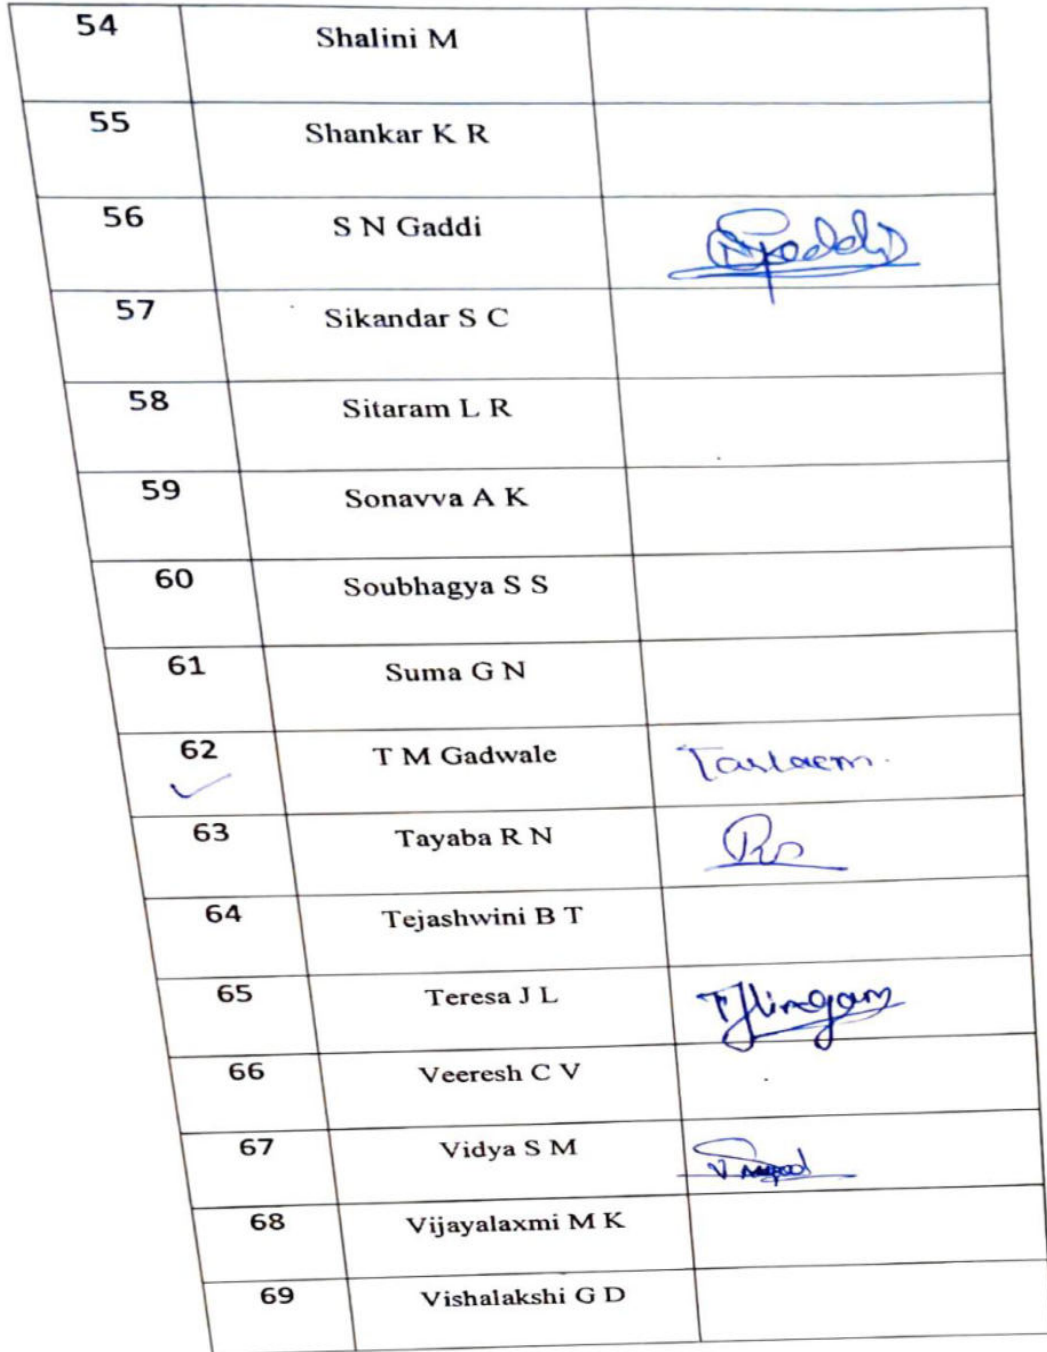 54 Shalini M
55 Shankar K R
56 S N Gaddi
57 Sikandar S C
58 Sitaram L R
59 Sonavva A K
60 Soubhagya S S
61 Suma G N
62 T M Gadwale
63 Tayaba R N
64 Tejashwini B T
65 Teresa J L
66 Veeresh C V
67 Vidya S M
68 Vijayalaxmi M K
69 Vishalakshi G D